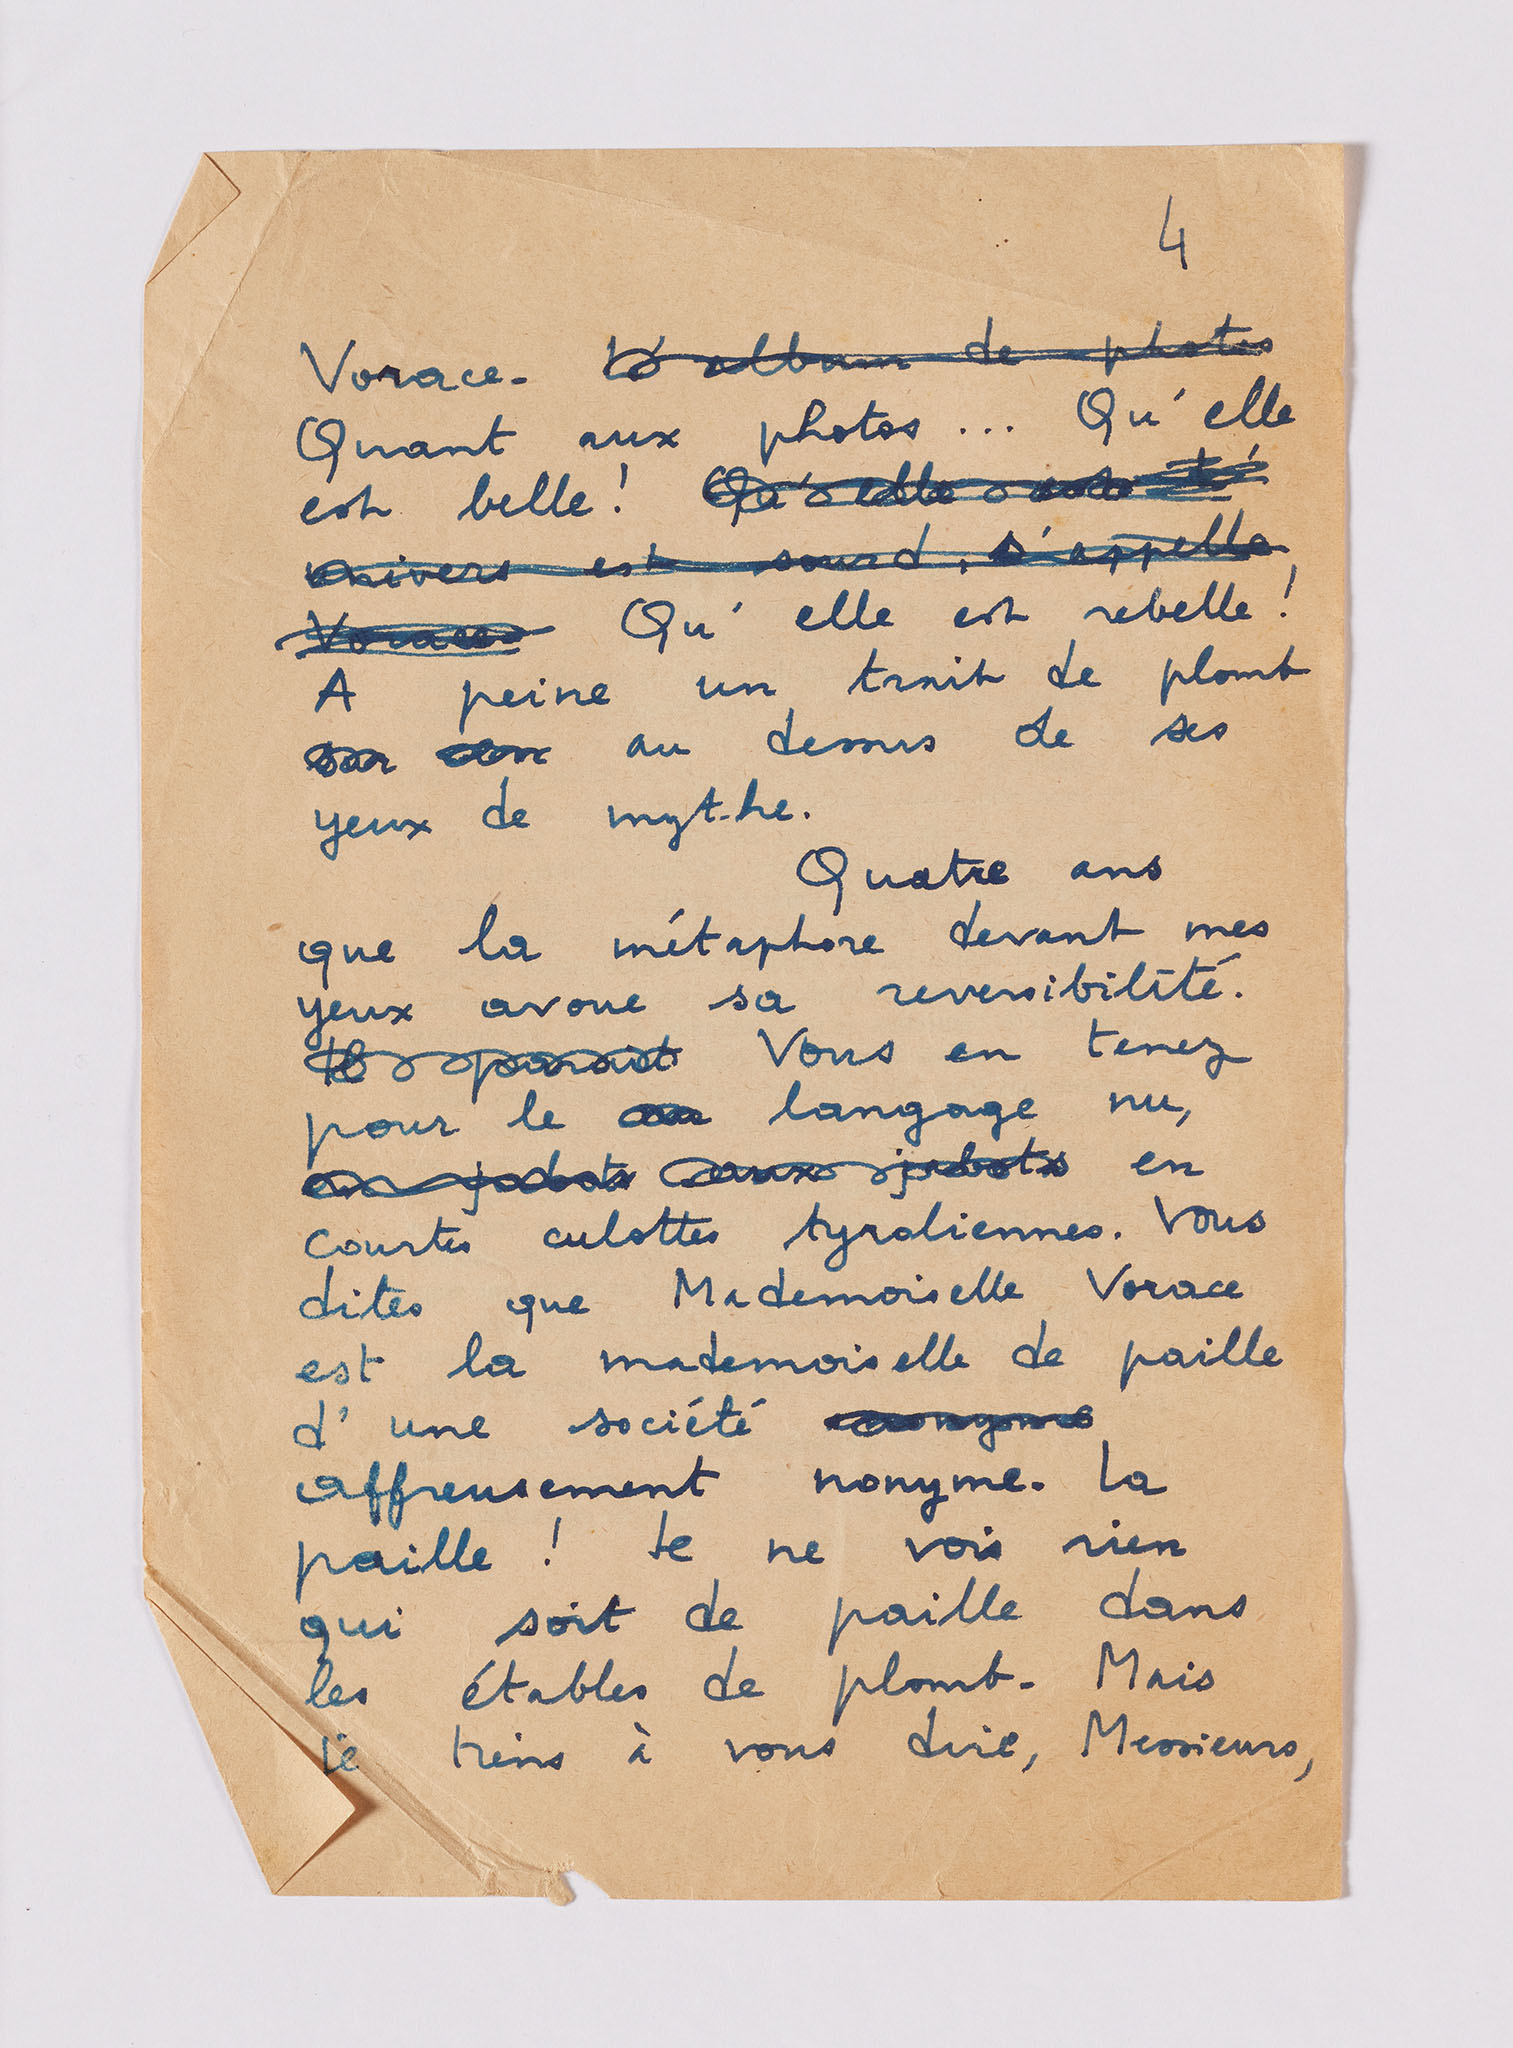 4
Vorace. L'album de photos
Quant aux photos... Qu'elle
est belle! Qu'elle
univers est sourd, s'appelle
Vorace Qu'elle est rebelle!
A peine un trait de plomb
sur au dessus de ses
yeux de mythe.
Quatre ans
que la métaphore devant mes
yeux avoue sa reversibilité.
Il parait Vous en tenez
pour le langage nu,
en jabots aux jabots en
courtes culottes tyroliennes. Vous
dites que Mademoiselle Vorace
est la mademoiselle de paille
d'une société anonyme
affreusement nonyme. La
paille! Je ne vois rien
qui soit de paille dans
les étables de plomb. Mais
je tiens à vous dire, Messieurs,